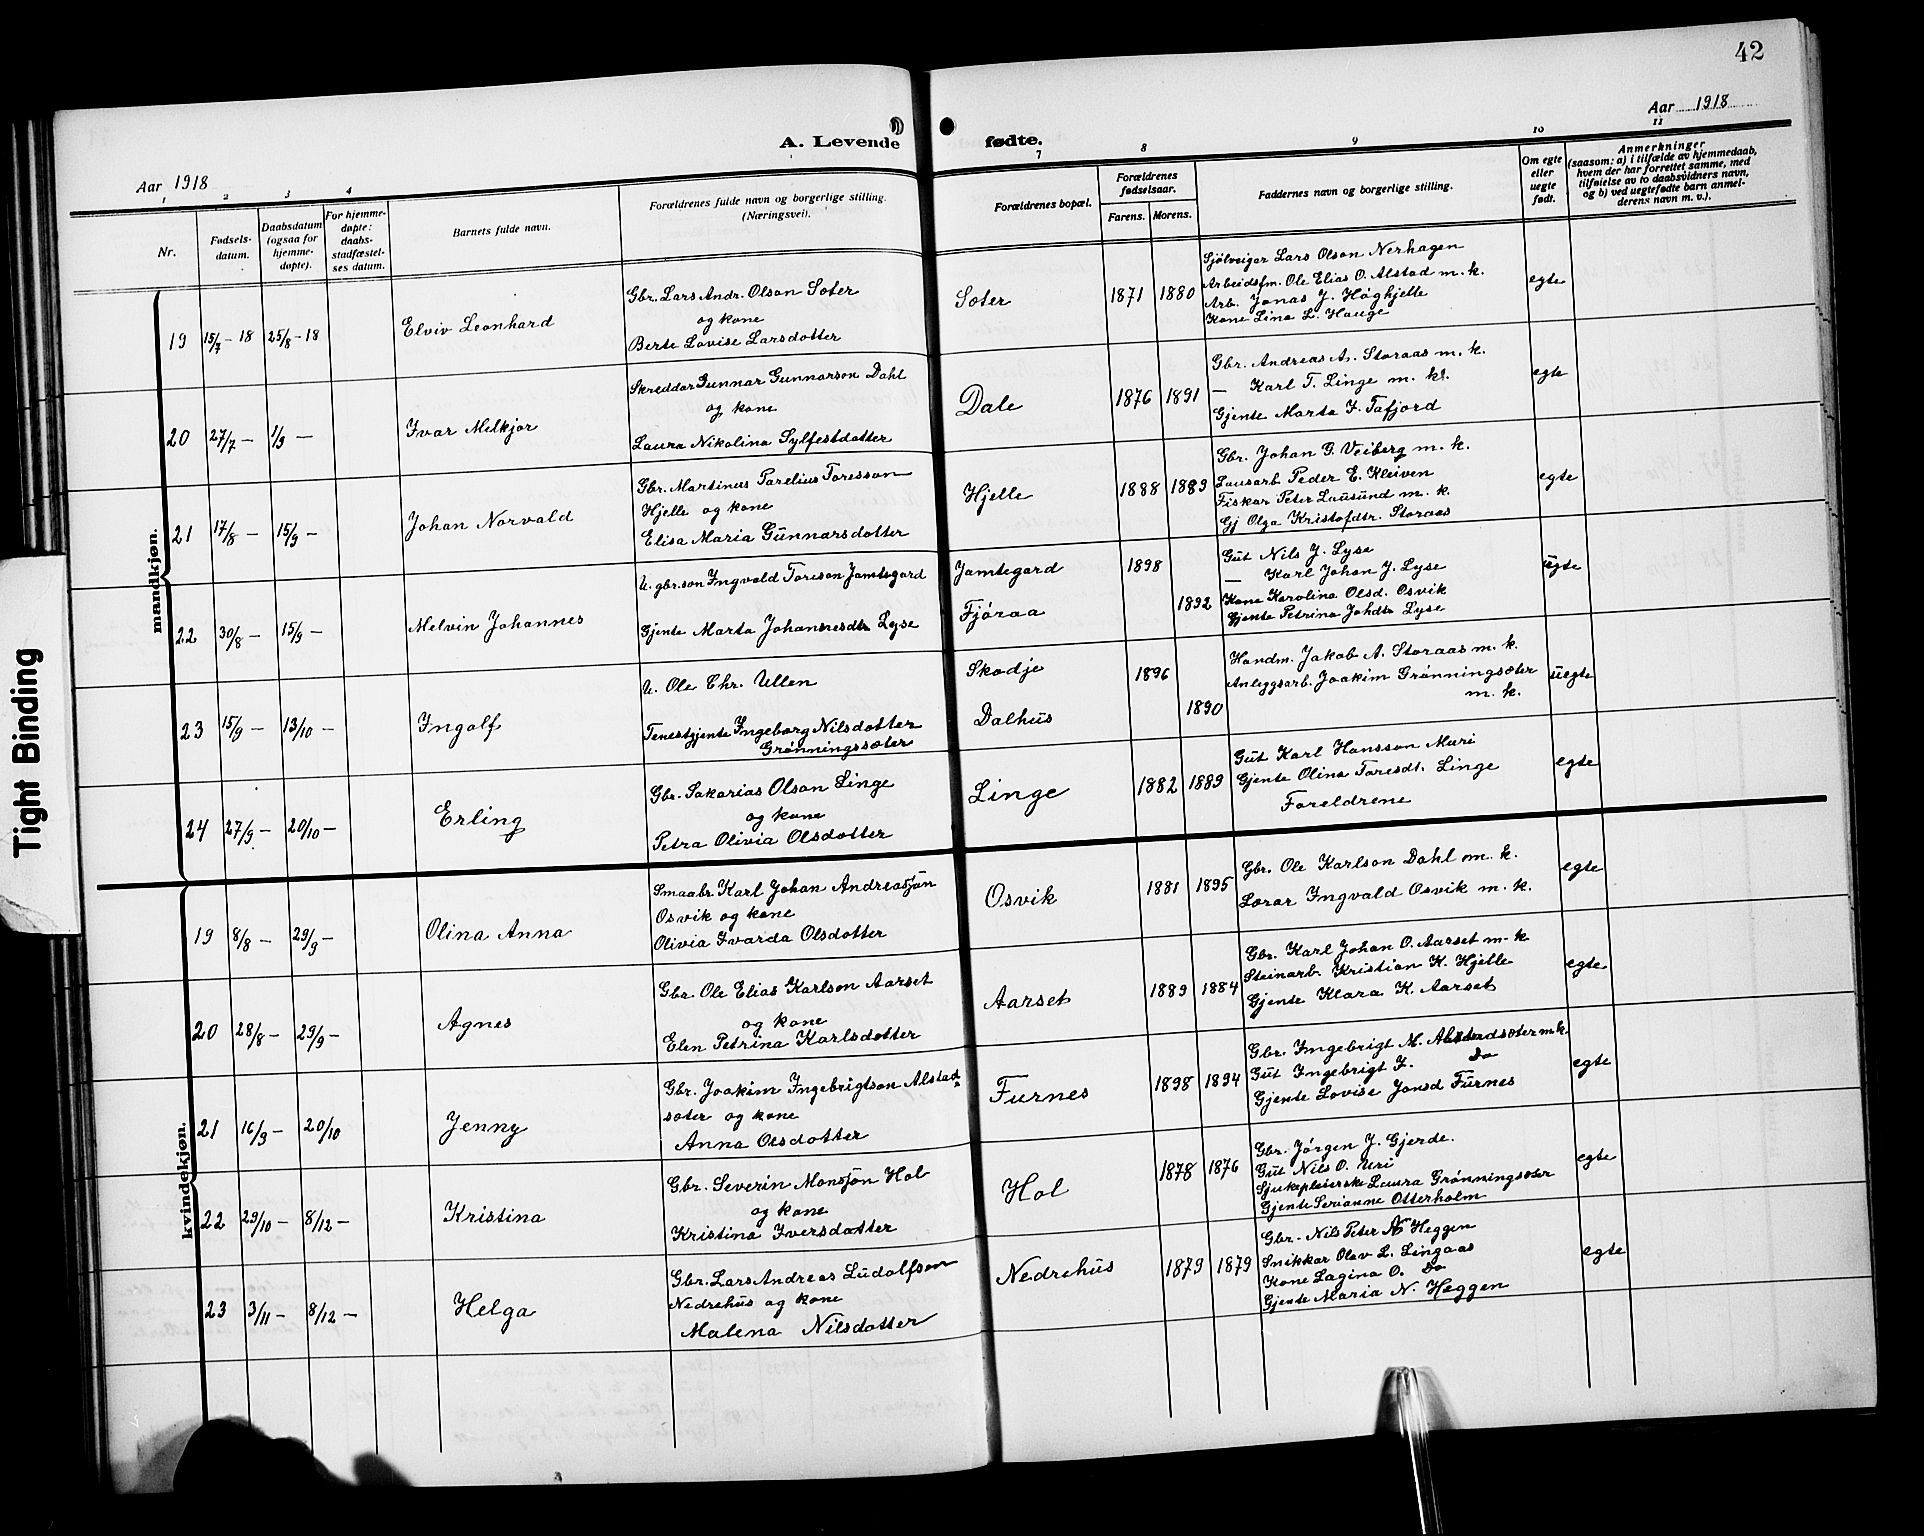 42
Aar 1918
A. Levende fødte.
Aar 1918
1 2 3 4 7 8 9 10 11
Nr.
Fødsels-
datum.
Daabsdatum
(ogsaa for
hjemme-
døpte).
For hjemme-
døpte:
daabs-
stadfæstel-
ses datum.
Barnets fulde navn.
Forældrenes fulde navn og borgerlige stilling.
(Næringsvei).
Forældrenes bopæl.
Forældrenes
fødselsaar.
Farens. Morens.
Faddernes navn og borgerlige stilling.
Om egte
eller
uegte
født.
Anmerkninger
(saasom: a) i tilfælde av hjemmedaab,
hvem der har forrettet samme, med
tilføielse av to daabsvidners navn,
og b) ved uegtefødte barn anmel-
derens navn m. v.).
mandkjøn.
19 15/7 - 18 25/8 - 18 Elviv Leonhard
Gbr. Lars Andr. Olson Sæter
og kone
Berte Lovise Larsdotter
Sæter 1871 1880
Sjølveigar Lars Olson Nerhagen
Arbeidsfm. Ole Elias O. Alstad m. k.
Arb. Jonas J. Høghjelle
Kone Lina L. Hauge
egte
20 27/7 - 1/9 - Ivar Melkjor
Skreddar Gunnar Gunnarson Dahl
og kone
Laura Nikolina Sylfestdotter
Dale 1876 1891
Gbr. Andreas A. Storaas m. k.
— Karl T. Linge m. k.
Gjente Marta I. Tafjord
egte
21 17/8 - 15/9 - Johan Norvald
Gbr. Martinus Parelius Toresson
Hjelle og kone
Elisa Maria Gunnarsdotter
Hjelle 1888 1889
Gbr. Johan G. Veiberg m. k.
Lausarb Peder E. Kleiven
Fiskar Peter Lausund m. k.
Gj Olga Kristofdtr. Storaas
egte
22 30/8 - 15/9 - Melvin Johannes
U. gbr.son Ingvald Toreson Jamtegard
Gjente Marta Johannesdtr Lyse
Jamtegard 1898
Fjøraa 1892
Gut Nils J. Lyse
— Karl Johan J. Lyse
Kone Karolina Olsd. Osvik
Gjente Petrina Johdtr Lyse
uegte
23 15/9 - 13/10 - Ingolf
U. Ole Chr. Ullen
Tenestgjente Ingeborg Nilsdotter
Grønningssæter
Skodje 1896
Dalhus 1890
Handm. Jakob A. Storaas m. k.
Anleggsarb. Joakim Grønningsæter
m. k.
uegte
24 27/9 - 20/10 - Erling
Gbr. Sakarias Olson Linge
og kone
Petra Olivia Olsdotter
Linge 1882 1889
Gut Karl Hansson Muri
Gjente Olina Taresdt. Linge
Foreldrene
egte
kvindekjøn.
19 8/8 - 29/9 - Olina Anna
Smaabr. Karl Johan Andreasjøn
Osvik og kone
Olivia Ivarda Olsdotter
Osvik 1881 1895
Gbr. Ole Karlson Dahl m. k.
Lærar Ingvald Osvik m. k.
egte
20 28/8 - 29/9 - Agnes
Gbr. Ole Elias Karlson Aarset
og kone
Elen Petrina Karlsdotter
Aarset 1889 1884
Gbr. Karl Johan O. Aarset m. k
Steinarb. Kristian K. Hjelle
Gjente Klara K. Aarset
egte
21 16/9 - 20/10 Jenny
Gbr. Joakim Ingebrigtson Alstad-
sæter og kone
Anna Olsdotter
Furnes 1898 1894
Gbr. Ingebrigt M. Alstadsæter m k.
Gut Ingebrigt J. Do
Gjente Lovise Jonsd Furnes
egte
22 29/10 - 8/12 - Kristina
Gbr. Severin Monsjøn Hol
og kone
Kristina Iversdotter
Hol 1878 1876
Gbr. Jørgen J. Gjerde.
Gut Nils O. Uri
Sjukepleierske Laura Grønningsæter
Gjente Serianne Otterholm
egte
23 3/11 - 8/12 - Helga
Gbr. Lars Andreas Ludolfson
Nedrehus og kone
Malena Nilsdotter
Nedrehus 1879 1879
Gbr. Nils Peter N Heggen
Snikkar Olav L. Lingaas
Kone Lagina O. Do
Gjente Maria N. Heggen
egte
Tight Binding